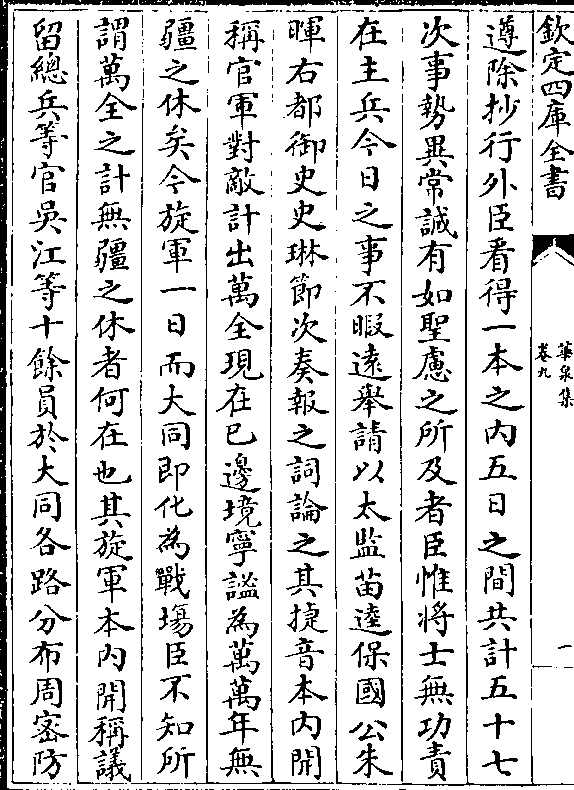 欽定四庫全書
華泉集
卷九
一
遵除抄行外臣看得一本之内五日之間共計五十七
次事勢異常誠有如聖慮之所及者臣惟将士無功責
在主兵今日之事不暇遠舉請以太監苗逵保國公朱
暉右都御史史琳節次奏報之詞論之其捷音本内開
稱官軍對敵計出萬全現在已邊境寧謐為萬萬年無
疆之休矣今旋軍一日而大同即化為戰塲臣不知所
謂萬全之計無疆之休者何在也其旋軍本内開稱議
留總兵等官吳江等十餘員於大同各路分布周密防